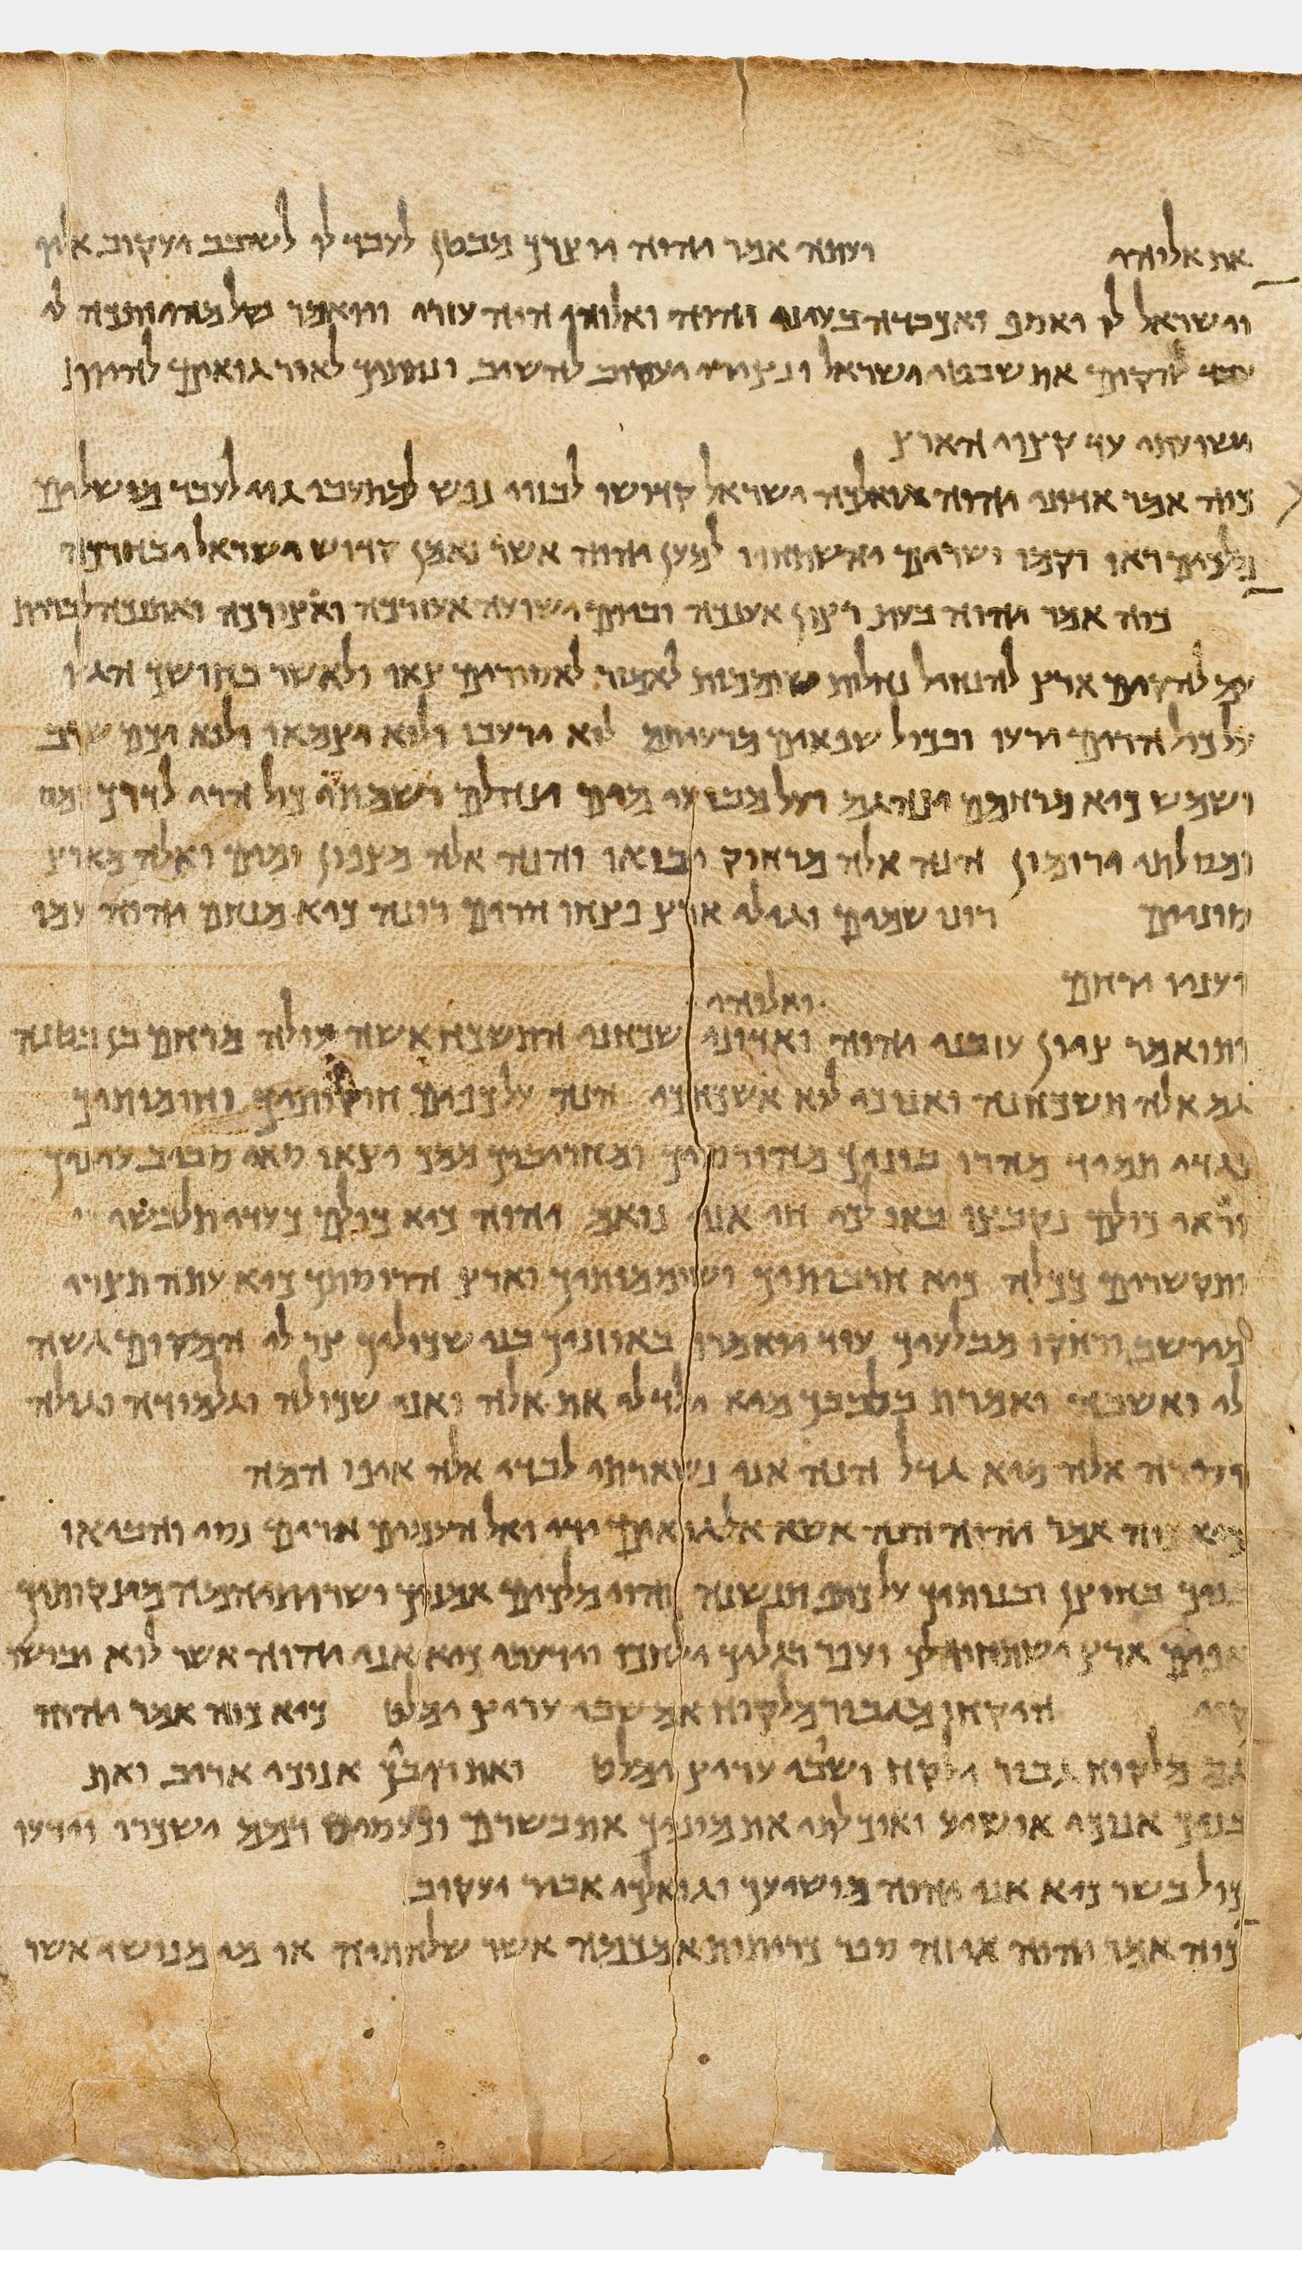 את אלוהי ועתה אמר יהוה יוצרך מבטן לעבד לו לשובב יעקוב אליו
וישראל לו יאסף ואכבדה בעיני יהוה ואלוהי היה עוזרי ויואמר הנקל מהיותכה לי
עבד להקים את שבטי ישראל ונצירי יעקוב להשיב ונתתיך לאור גואים להיות
ישועתי עד קצוי הארץ
כוה אמר אדוני יהוה גואלכה ישראל קדושו לבזוי נפש למתעבי גוי לעבד מושלים
מלכים ראו וקמו ושרים והשתחוו למען יהוה אשר נאמן קדוש ישראל יבחרכה
כוה אמר יהוה בעת רצון אענכה וביום ישועה אעזרכה ואצורכה ואתנכה לברית
עם להקים ארץ להנחיל נחלות שוממות לאמור לאסורים צאו ולאשר בחושך הגלו
על כול הרים ירעו ובכול שפאים מרעיתם לוא ירעבו ולוא יצמאו ולוא יכם שרב
ושמש כיא מרחמם ינהגם ועל מבועי מים ינהלם ושמתי כול הרי לדרך
ומסלתי ירומון הנה אלה מרחוק יבואו והנה אלה מצפון ומים ואלה מארץ
סונים רונו שמים וגילי ארץ פצחו הרים רונה כיא מנחם יהוה עמו
ועניו ירחם
ואלוהי
ותואמר ציון עזבני יהוה ואדוני שכחני התשכח אשה עולה מרחם בן בטנה
גם אלה תשכחנה ואנוכי לוא אשכחכי הנה על כפים חקותיך וחומותיך
נגדי תמיד מהרו בוניך מהורסיך ומחריביך ממך יצאו שאי סביב עיניך
וראי כולם נקבצו באו לך חי אני נואם יהוה כיא כולם כעדי תלבשי
ותקשרים ככלה כיא חרבותיך ושוממותיך וארץ הריסותיך כיא עתה תצרי
מיושב ורחקו מבלעיך עוד יואמרו באוזניך בני שכוליך צר לי המקום גשה
לי ואשבה ואמרת בלבבך מיא ילד לי את אלה ואני שכולה וגלמודה וגולה
וסרה אלה מיא גדל הנה אני נשארתי לבדי אלה איפו המה
כיא כוה אמר יהוה הנה אשא אל גואים ידי ואל העמים ארים נסי והביאו
בניך בחוצן ובנותיך על כתף תנשינה והיו מלכים אמניך ושרותיהמה מיניקותיך
אפים ארץ ישתחוו לך ועפר רגליך ילחכו וידעתי כיא אני יהוה אשר לוא יבושו
קוי היקחו מגבור מלקוח אם שבי עריץ ימלט כיא כוה אמר יהוה
גם מלקוח גבור ילקח ושבי עריץ ימלט ואת ריבך אנוכי אריב ואת
בניך אנוכי אושיע ואוכלתי את מוניך את בשרם וכעסיס דמם ישכרו וידעו
כול בשר כיא אני יהוה מושיעך וגואלך אביר יעקוב
כוה אמר יהוה אי זה ספר כריתות אמכמה אשר שלחתיה או מי מנושי אשר